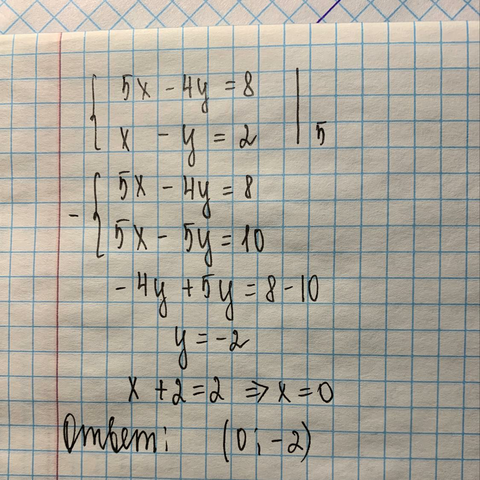 5x - 4y = 8
x - y = 2 | 5
- 5x - 4y = 8
5x - 5y = 10
- 4y + 5y = 8 - 10
y = -2
x + 2 = 2 ⇒ x = 0
Ответ: (0; -2)